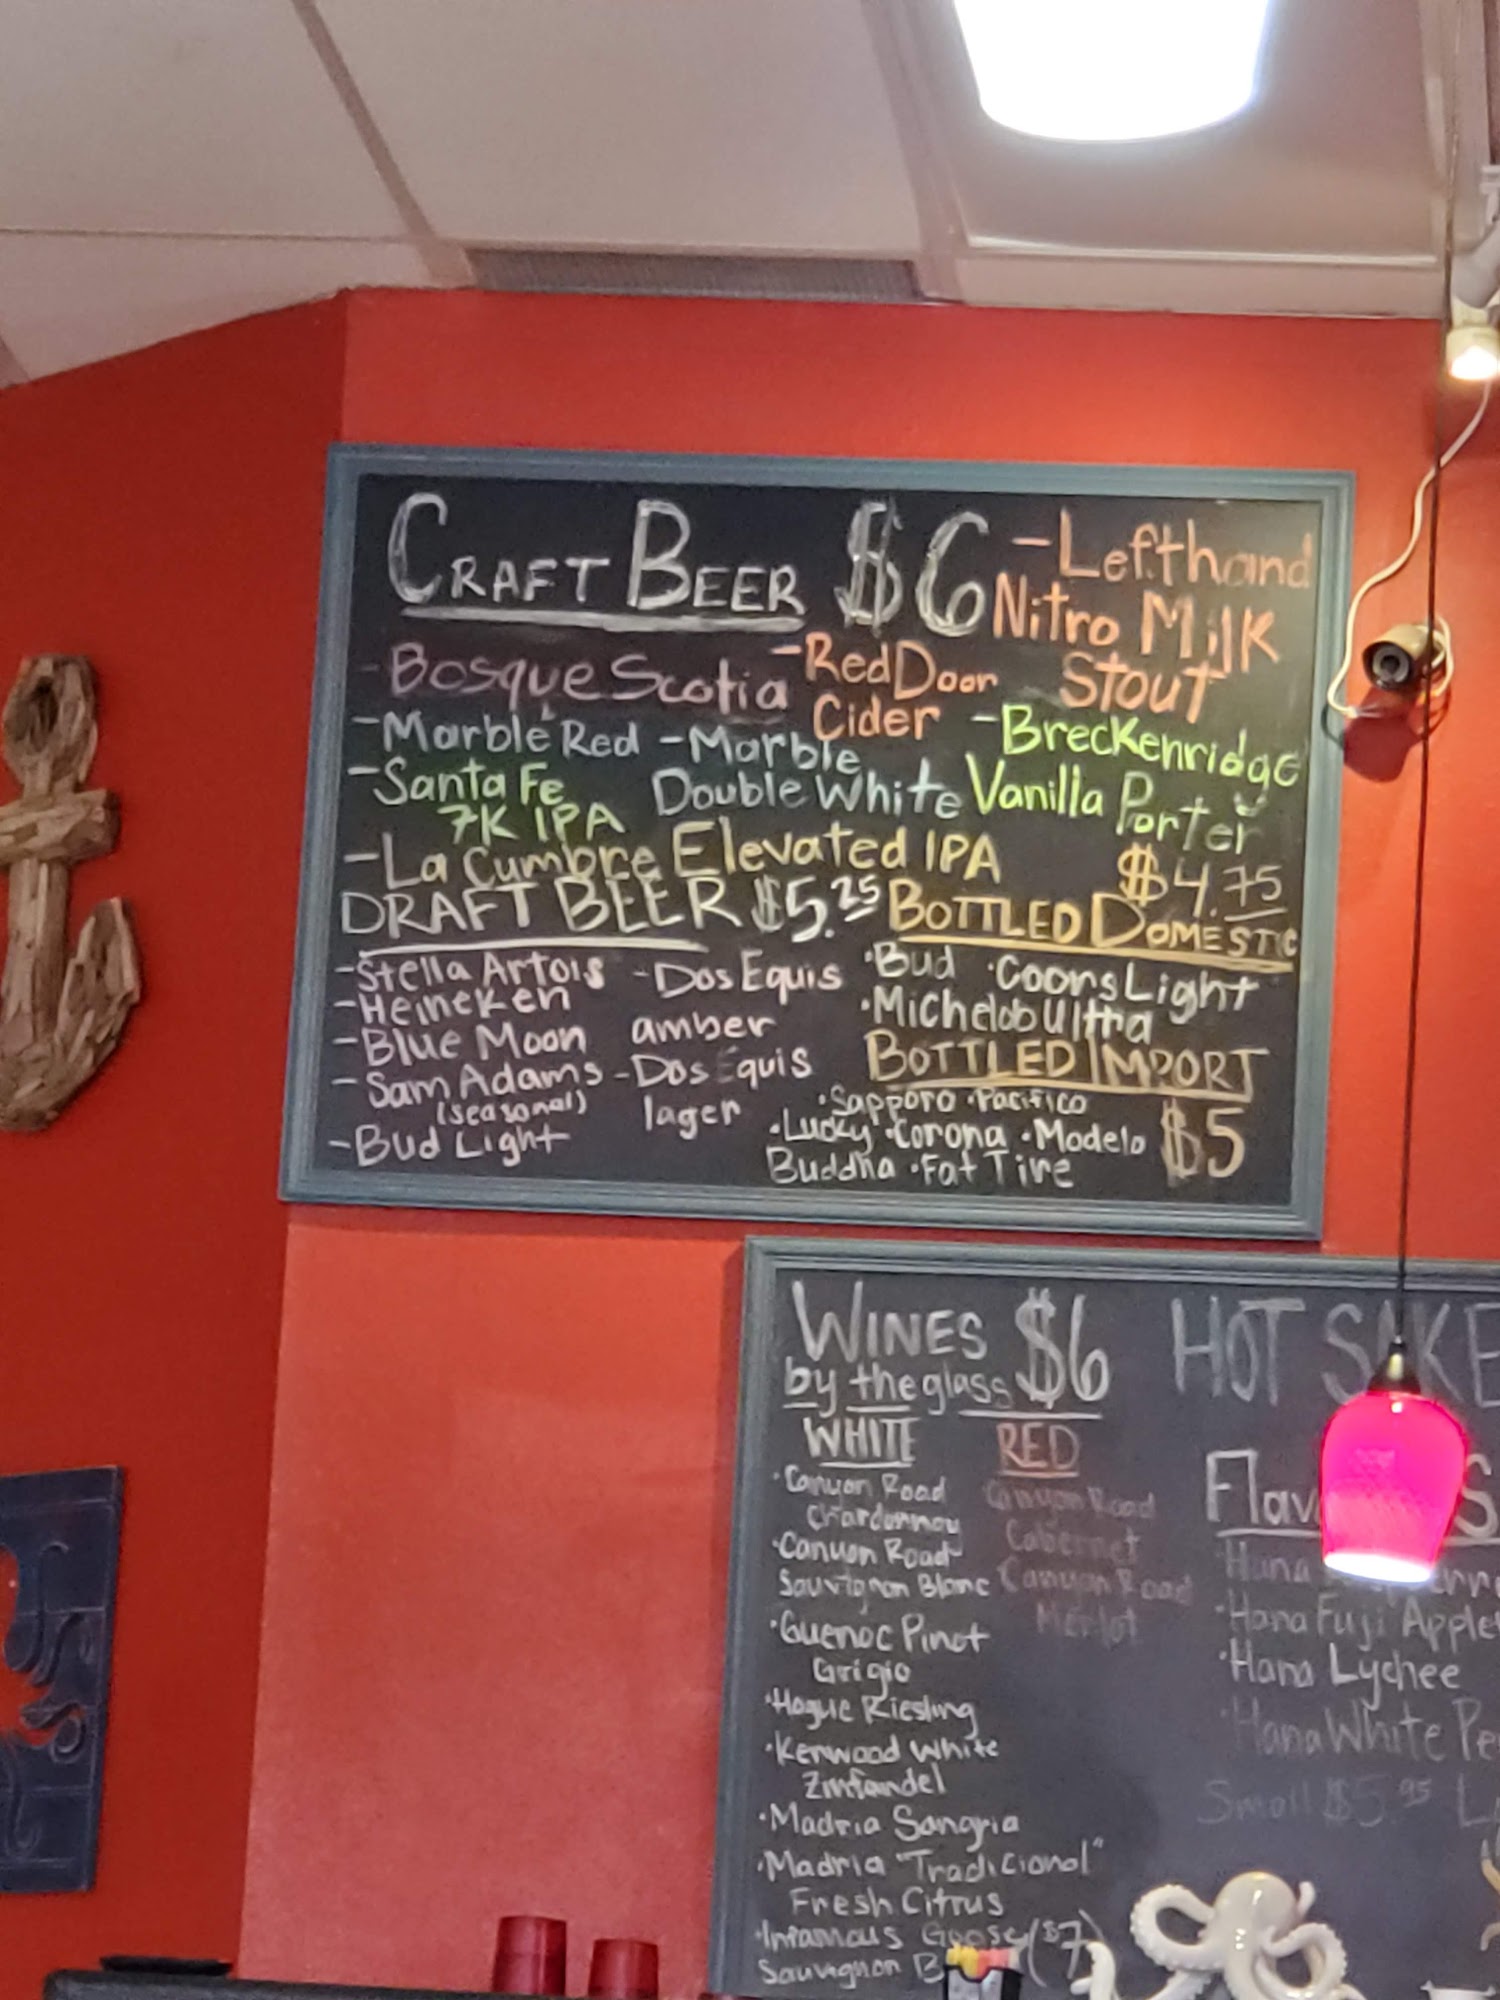 CRAFT BEER $6
-Lefthand
Nitro Milk
Stout
-Bosque Scotia
-Red Door
Cider
-Marble Red
-Marble
Double White
-Breckenridge
Vanilla Porter
-Santa Fe
7K IPA
-La Cumbre Elevated IPA
DRAFT BEER $5.25
-Stella Artois
-Heineken
-Blue Moon
-Sam Adams
(seasonal)
-Bud Light
-Dos Equis
amber
-Dos Equis
lager
$4.75
BOTTLED DOMESTIC
·Bud ·Coors Light
·Michelob Ultra
BOTTLED IMPORT
·Sapporo ·Pacifico
·Lucky ·Corona ·Modelo
Buddha ·Fat Tire
$5
WINES $6
by the glass
WHITE
·Canyon Road
Chardonnay
·Canyon Road
Sauvignon Blanc
·Guenoc Pinot
Grigio
·Hogue Riesling
·Kenwood White
Zinfandel
·Madria Sangria
·Madria "Tradicional"
Fresh Citrus
·Infamous Goose ($7)
Sauvignon B
RED
Canyon Road
Cabernet
Canyon Road
Merlot
HOT SAKE
Flav
Hana
·Hana Fuji Apple
·Hana Lychee
·Hana White Pe
Small $5.95 L